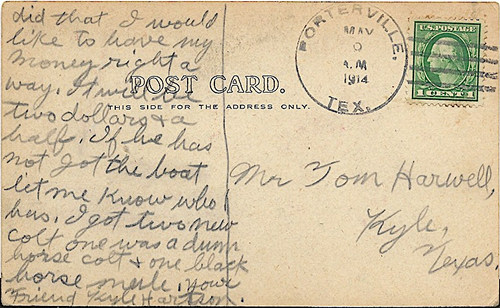 did that I would
like to have my
money right a
way. It will be
two dollars & a
half. If he has
not got the boat
let me know who
has. I got two new
colt one was a dun
horse colt & one black
horse mule, your
Friend Lyle Harrison.
POST CARD.
THIS SIDE FOR THE ADDRESS ONLY.
PORTERVILLE,
MAY
A.M
1914
TEX.
U.S. POSTAGE
1 CENT 1
Mr Tom Harwell,
Kyle,
Texas.